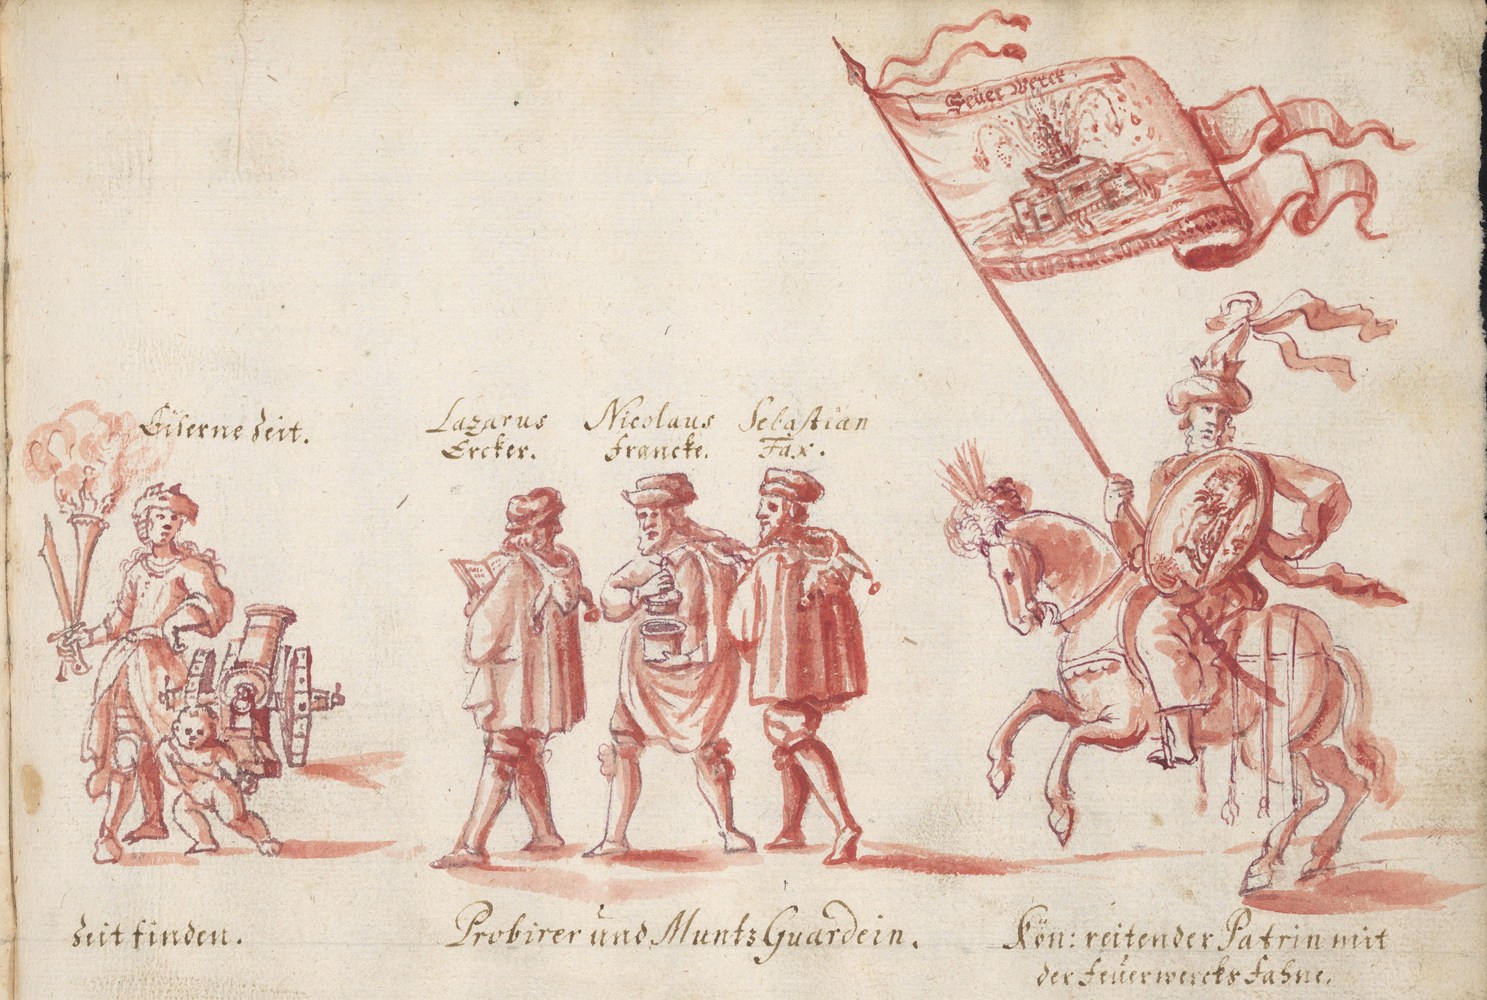 Feuer Werck.
Eiserne Zeit.
Lazarus
Ercker.
Nicolaus
Francke.
Sebastian
Fax.
Zeit finden.
Probirer und Muntz Guardein.
Kön: reitender Patrin mit
der feuerwercks fahne.